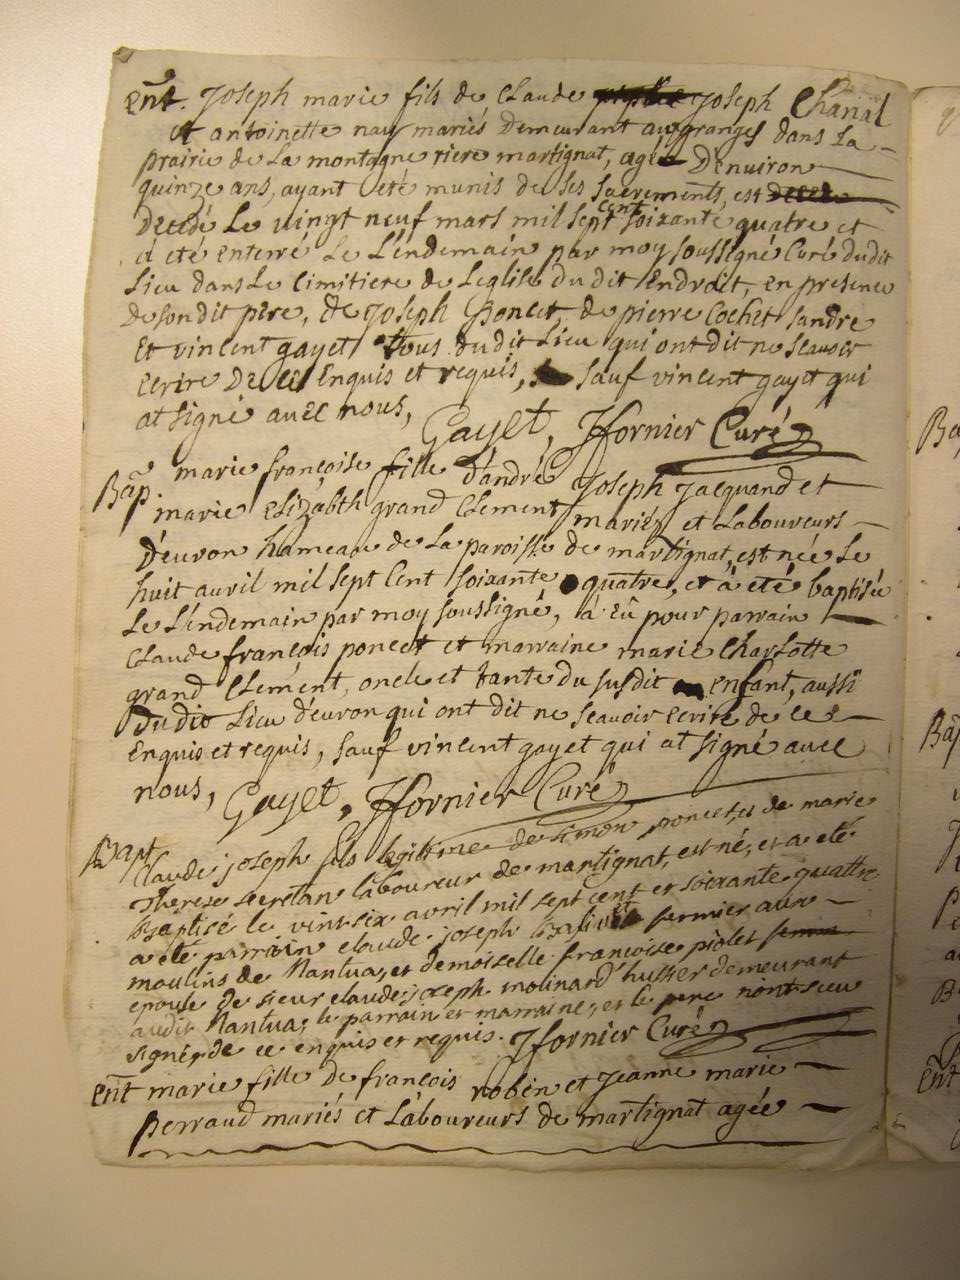 Ent. Joseph marie fils de Claude Joseph Chanal
et antoinette nay mariés Demeurant aux granges dans La
prairie de La montagne riere martignat, agé D'environ
quinze ans, ayant été munis de ses sacrements, est
Decedé Le vingt neuf mars mil sept cent soixante quatre et
a été enterré Le L'endemain par moy soussigné Curé du dit
Lieu dans Le Cimitiere de Leglise du dit Endroit, en presence
de son dit pere, de Joseph Poncet, de pierre Cochet Landre
Et vincent gayet tous du dit Lieu qui ont dit ne scavoir
ecrire De ce Enquis et requis, sauf vincent gayet qui
at signé avec nous, Gayet, Ffornier Curé
Bap. marie françoise fille d'andré Joseph Jacquand et
marie Elizabth grand Clement mariéz et Laboureurs
D'evron hameau de La paroisse de martignat, est née Le
huit avril mil sept Cent soixante quatre, et à été baptisée
Le L'endemain par moy soussigné, à Eû pour parrain
Claude françois poncet et marraine marie Charlotte
grand Clement, oncle et tante du susdit enfant, aussi
Dudit Lieu d'evron qui ont dit ne scavoir ecrire de ce
Enquis et requis, sauf vincent gayet qui at signé avec
nous, Gayet, Ffornier Curé
Bapt Claude joseph fils legitime de simon poncet, et de marie
Therese secretan laboureur de martignat, est né, et a eté
Baptisé le vint-six avril mil sept cent et soixante quattre
a eté parrain claude joseph fermier aux
moulins de Nantua, et demoiselle francoise piolet
epouse de sieur claude, joseph molinard husser demeurant
audit Nantua; le parrain et marraine, et le pere n'ont sceu
signer de ce enquis et requis. Ffornier Curé
Ent marie fille de françois robin et Jeanne marie
Perraud mariés et Laboureurs de martignat agée